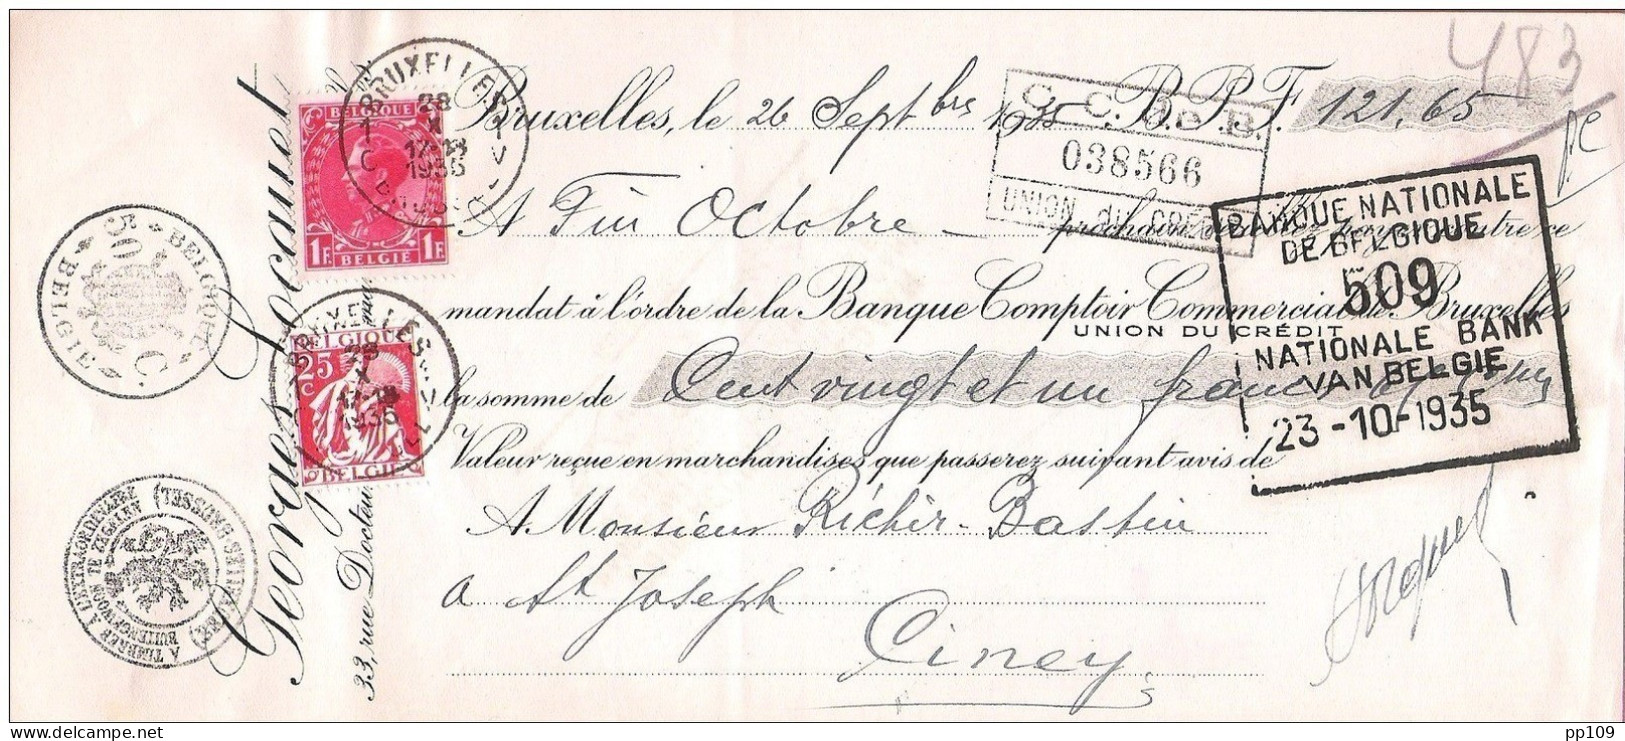 483
Bruxelles, le 26 Septbre 1935 B.P.F. 121,65
C.C. DE B.
038566
UNION du CRÉDIT
A Fin Octobre prochain
mandat à l'ordre de la Banque Comptoir Commercial de Bruxelles
UNION DU CRÉDIT
la somme de Cent vingt et un francs
Valeur reçue en marchandises que passerez suivant avis de
A Monsieur Richir-Bastin
a St Joseph
Ciney
BANQUE NATIONALE
DE BELGIQUE
509
NATIONALE BANK
VAN BELGIE
23-10-1935
Georges Jocquet
33, rue Docteur
BELGIQUE
1F. 1F.
BELGIË
BRUXELLES
28
X
17-18
1935
BRUSSEL
BELGIQUE
25
C
BELGIË
28
X
17-18
1935
BELGIQUE
50 C.
BELGIË
TIMBRE A L'EXTRAORDINAIRE
BUITENGEWOON TE ZEGELEN
pp109